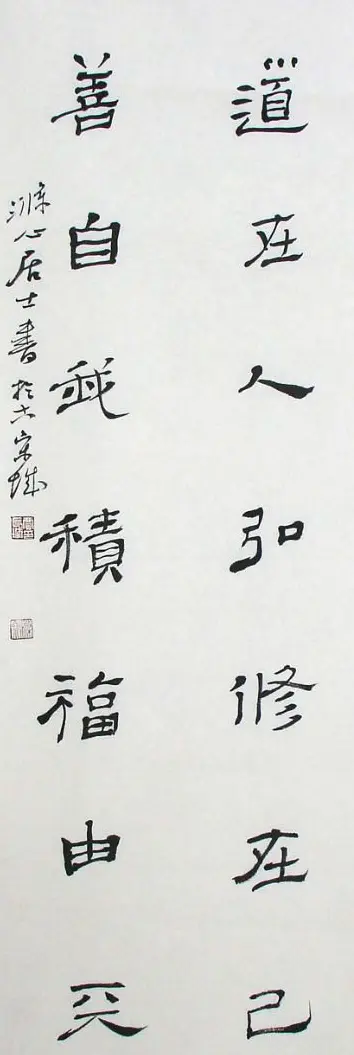 道在人弘修在己
善自我積福由天
心居士書於宋城